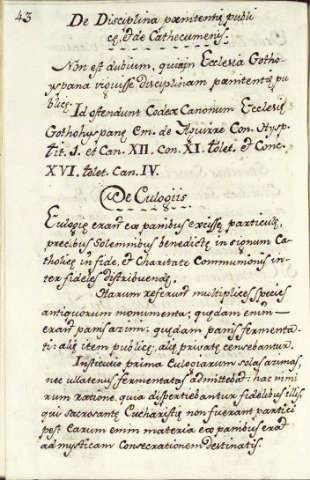 43
De Disciplina pœnitentię publi
cę, et de Cathecumenis.
Non est dubium, quin in Ecclesia Gotho-
yspana viguisse disciplinam pœnitentię pu
blicę.
Id ostendunt Codex Canonum Ecclesię
Gothohyspanę Em. de Aguirre Con. Hysp.
tit. 1. et Can. XII. Con. XI. tolet. et Conc.
XVI. tolet. Can. IV.
De Eulogiis
Eulogię erant ex panibus excissę particulę,
precibus solemnibus benedictę in signum Ca-
tholicę in fide, et charitate Communionis in-
ter fideles distribuendę.
Harum referunt multiplices species
antiquorum monumenta: quędam enim
erant panis azimi: quędam panis fermenta-
ti: alię item publicę, alię privatę censebantur.
Institutio prima Eulogiarum solas azimas,
nec ullatenus fermentatas admittebat: hac nimi
rum ratione, quia dispertiebantur fidelibus illis,
qui sacrosanctę Eucharistię non fuerant partici
pes. Earum enim materia ex panibus erat
ad mysticam Consecrationem destinatis.